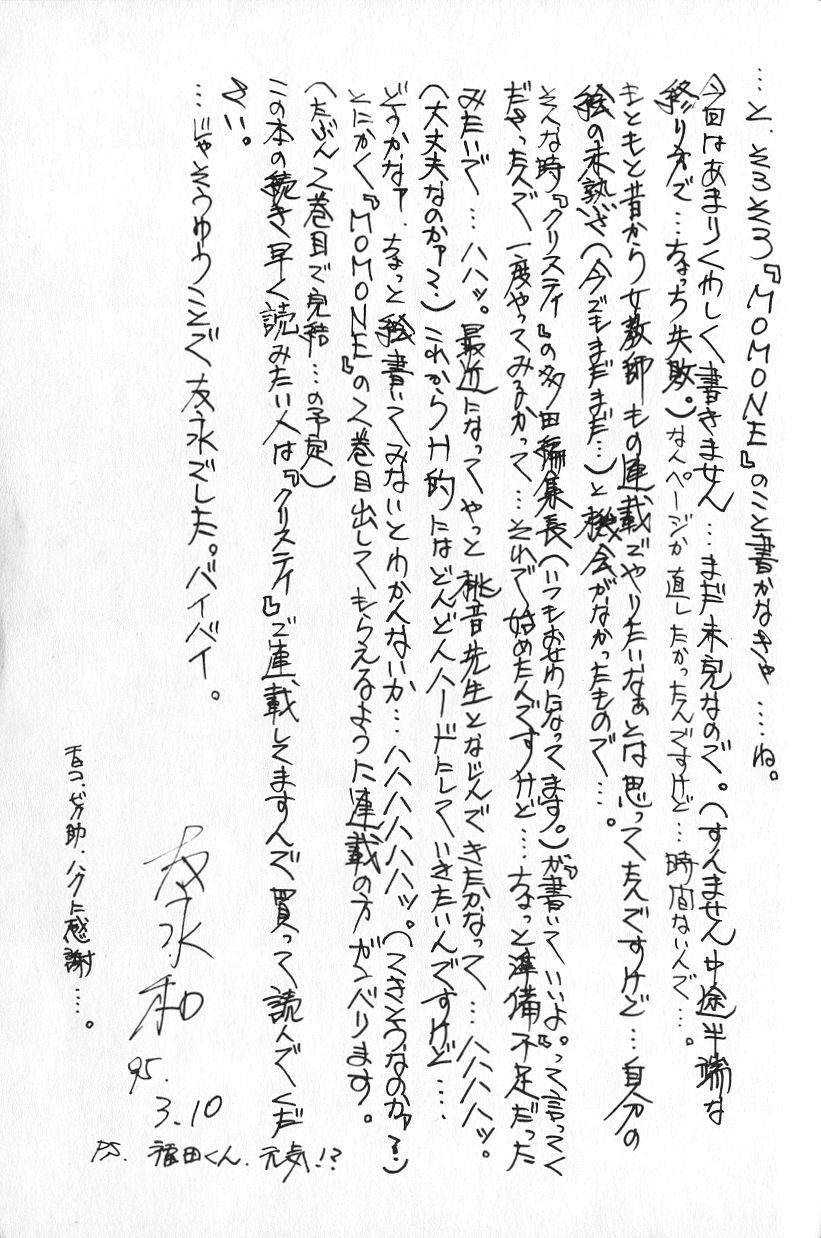 …と、そろそろ『MOMONE』のこと書かなきゃ……ね。
今回はあまりくわしく書きません…まだ未完なので。（すんません中途半端な
終り方で…ちょっち失敗。）なんページか直したかったんですけど…時間ないんで…。
もともと昔から女教師もの連載でやりたいなぁとは思ってたんですけど…自分の
絵の未熟さ（今でもまだまだ…）と機会がなかったもので…。
そんな時『クリスティ』の多田編集長（いつもお世わになってます。）が『書いていいよ。』って言ってく
ださったんで一度やってみるかって…それで始めたんですけど…ちょっと準備不足だった
みたいで…ハハッ。最近になってやっと桃音先生となじんできたかなって…ハハハハッ。
（大丈夫なのかァ？）これからH的にはどんどんハードにしていきたいんですけど……
どうかなァ、ちょっと絵書いてみないとわかんないか…ハハハハハハッ。（てきとうなのかァ？）
とにかく『MOMONE』の2巻目出してもらえるように連載の方ガンバります。
（たぶん2巻目で完結…の予定）
この本の続き早く読みたい人は『クリスティ』で連載してますんで買って読んでくだ
さい。
…じゃそうゆうことで友永でした。バイバイ。
友永和
95.
3.10
P.S. 福田くん、元気!?
助、ハクに感謝……。